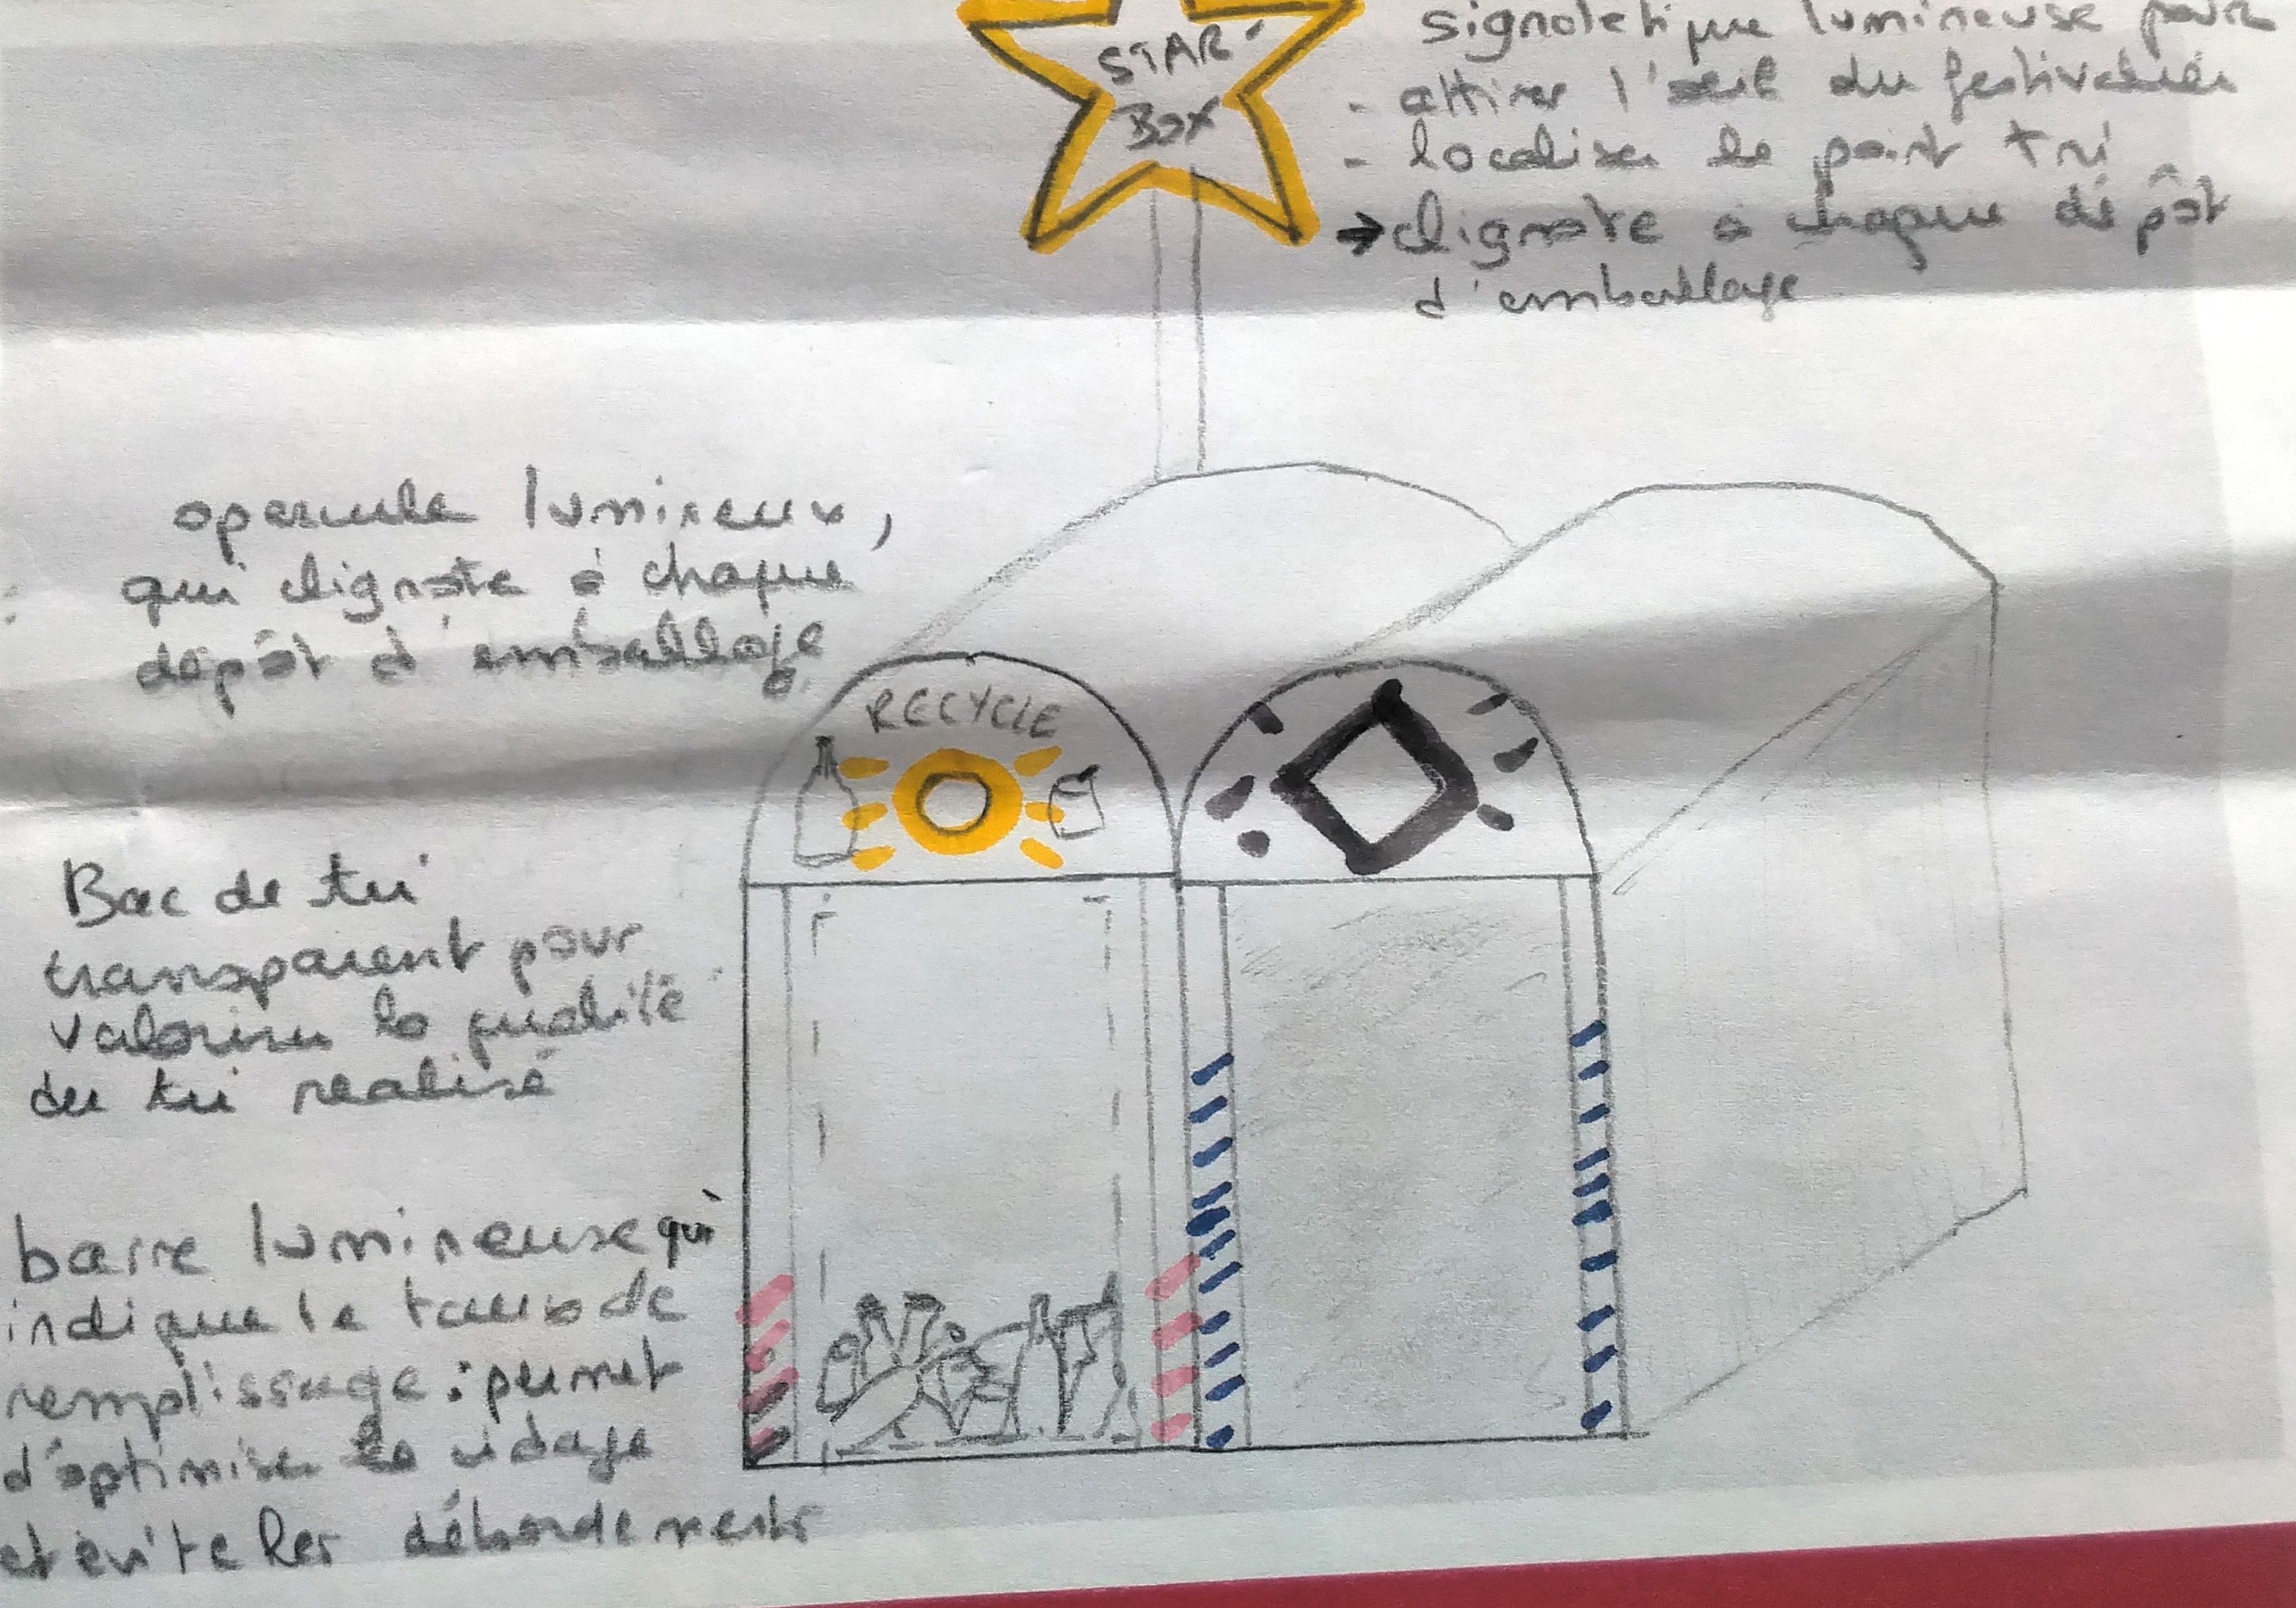 STAR-
BOX
signaletique lumineuse pour
- attirer l'œil du festivalier
- localiser le point tri
→ clignote à chaque dépôt
d'emballage
opercule lumineux,
qui clignote à chaque
dépôt d'emballage
RECYCLE
Bac de tri
transparent pour
valoriser la qualité
du tri réalisé
barre lumineuse qui
indique le taux de
remplissage : permet
d'optimiser le vidage
et évite les débordements